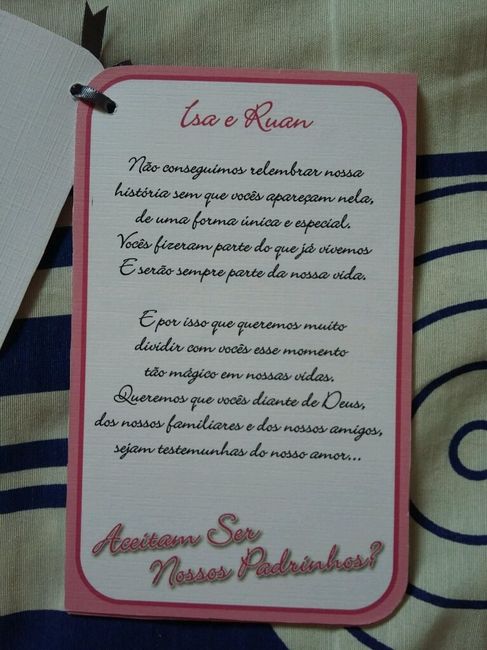 Isa e Ruan
Não conseguimos relembrar nossa
história sem que vocês apareçam nela,
de uma forma única e especial.
Vocês fizeram parte do que já vivemos
E serão sempre parte da nossa vida.
E por isso que queremos muito
dividir com vocês esse momento
tão mágico em nossas vidas.
Queremos que vocês diante de Deus,
dos nossos familiares e dos nossos amigos,
sejam testemunhas do nosso amor...
Aceitam Ser
Nossos Padrinhos?